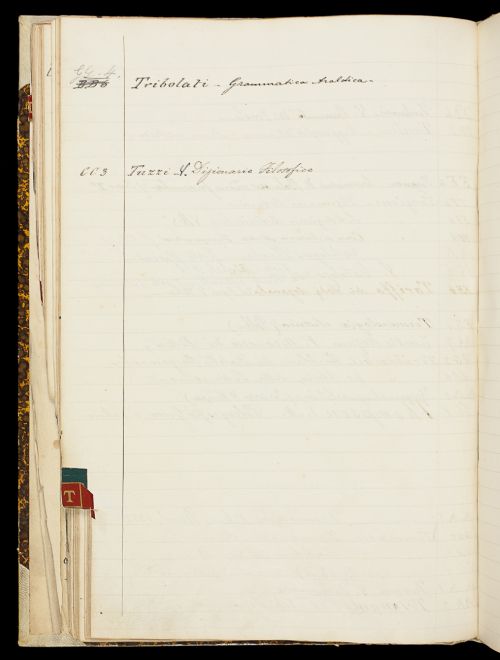 GG. 4.
BB6 Tribolati - Grammatica Araldica -
CC.3 Tuzzi A. Dizionario Filosofico
T